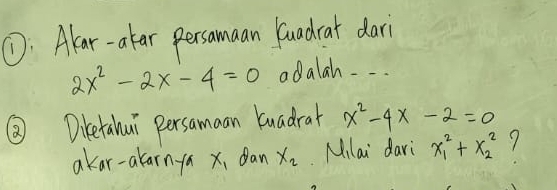 ①. Akar-akar persamaan kuadrat dari
2x² - 2x - 4 = 0 adalah - - -
② Diketahui persamaan kuadrat x² - 4x - 2 = 0
akar-akarnya x₁ dan x₂. Nilai dari x₁² + x₂² ?